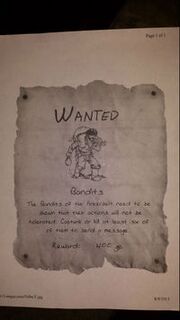 Page 1 of 1
WANTED
Bandits
The Bandits of the need to be
shown that their actions will not be
tolerated. Capture or kill at least six of
of them to send a message.
Reward: 400 gp